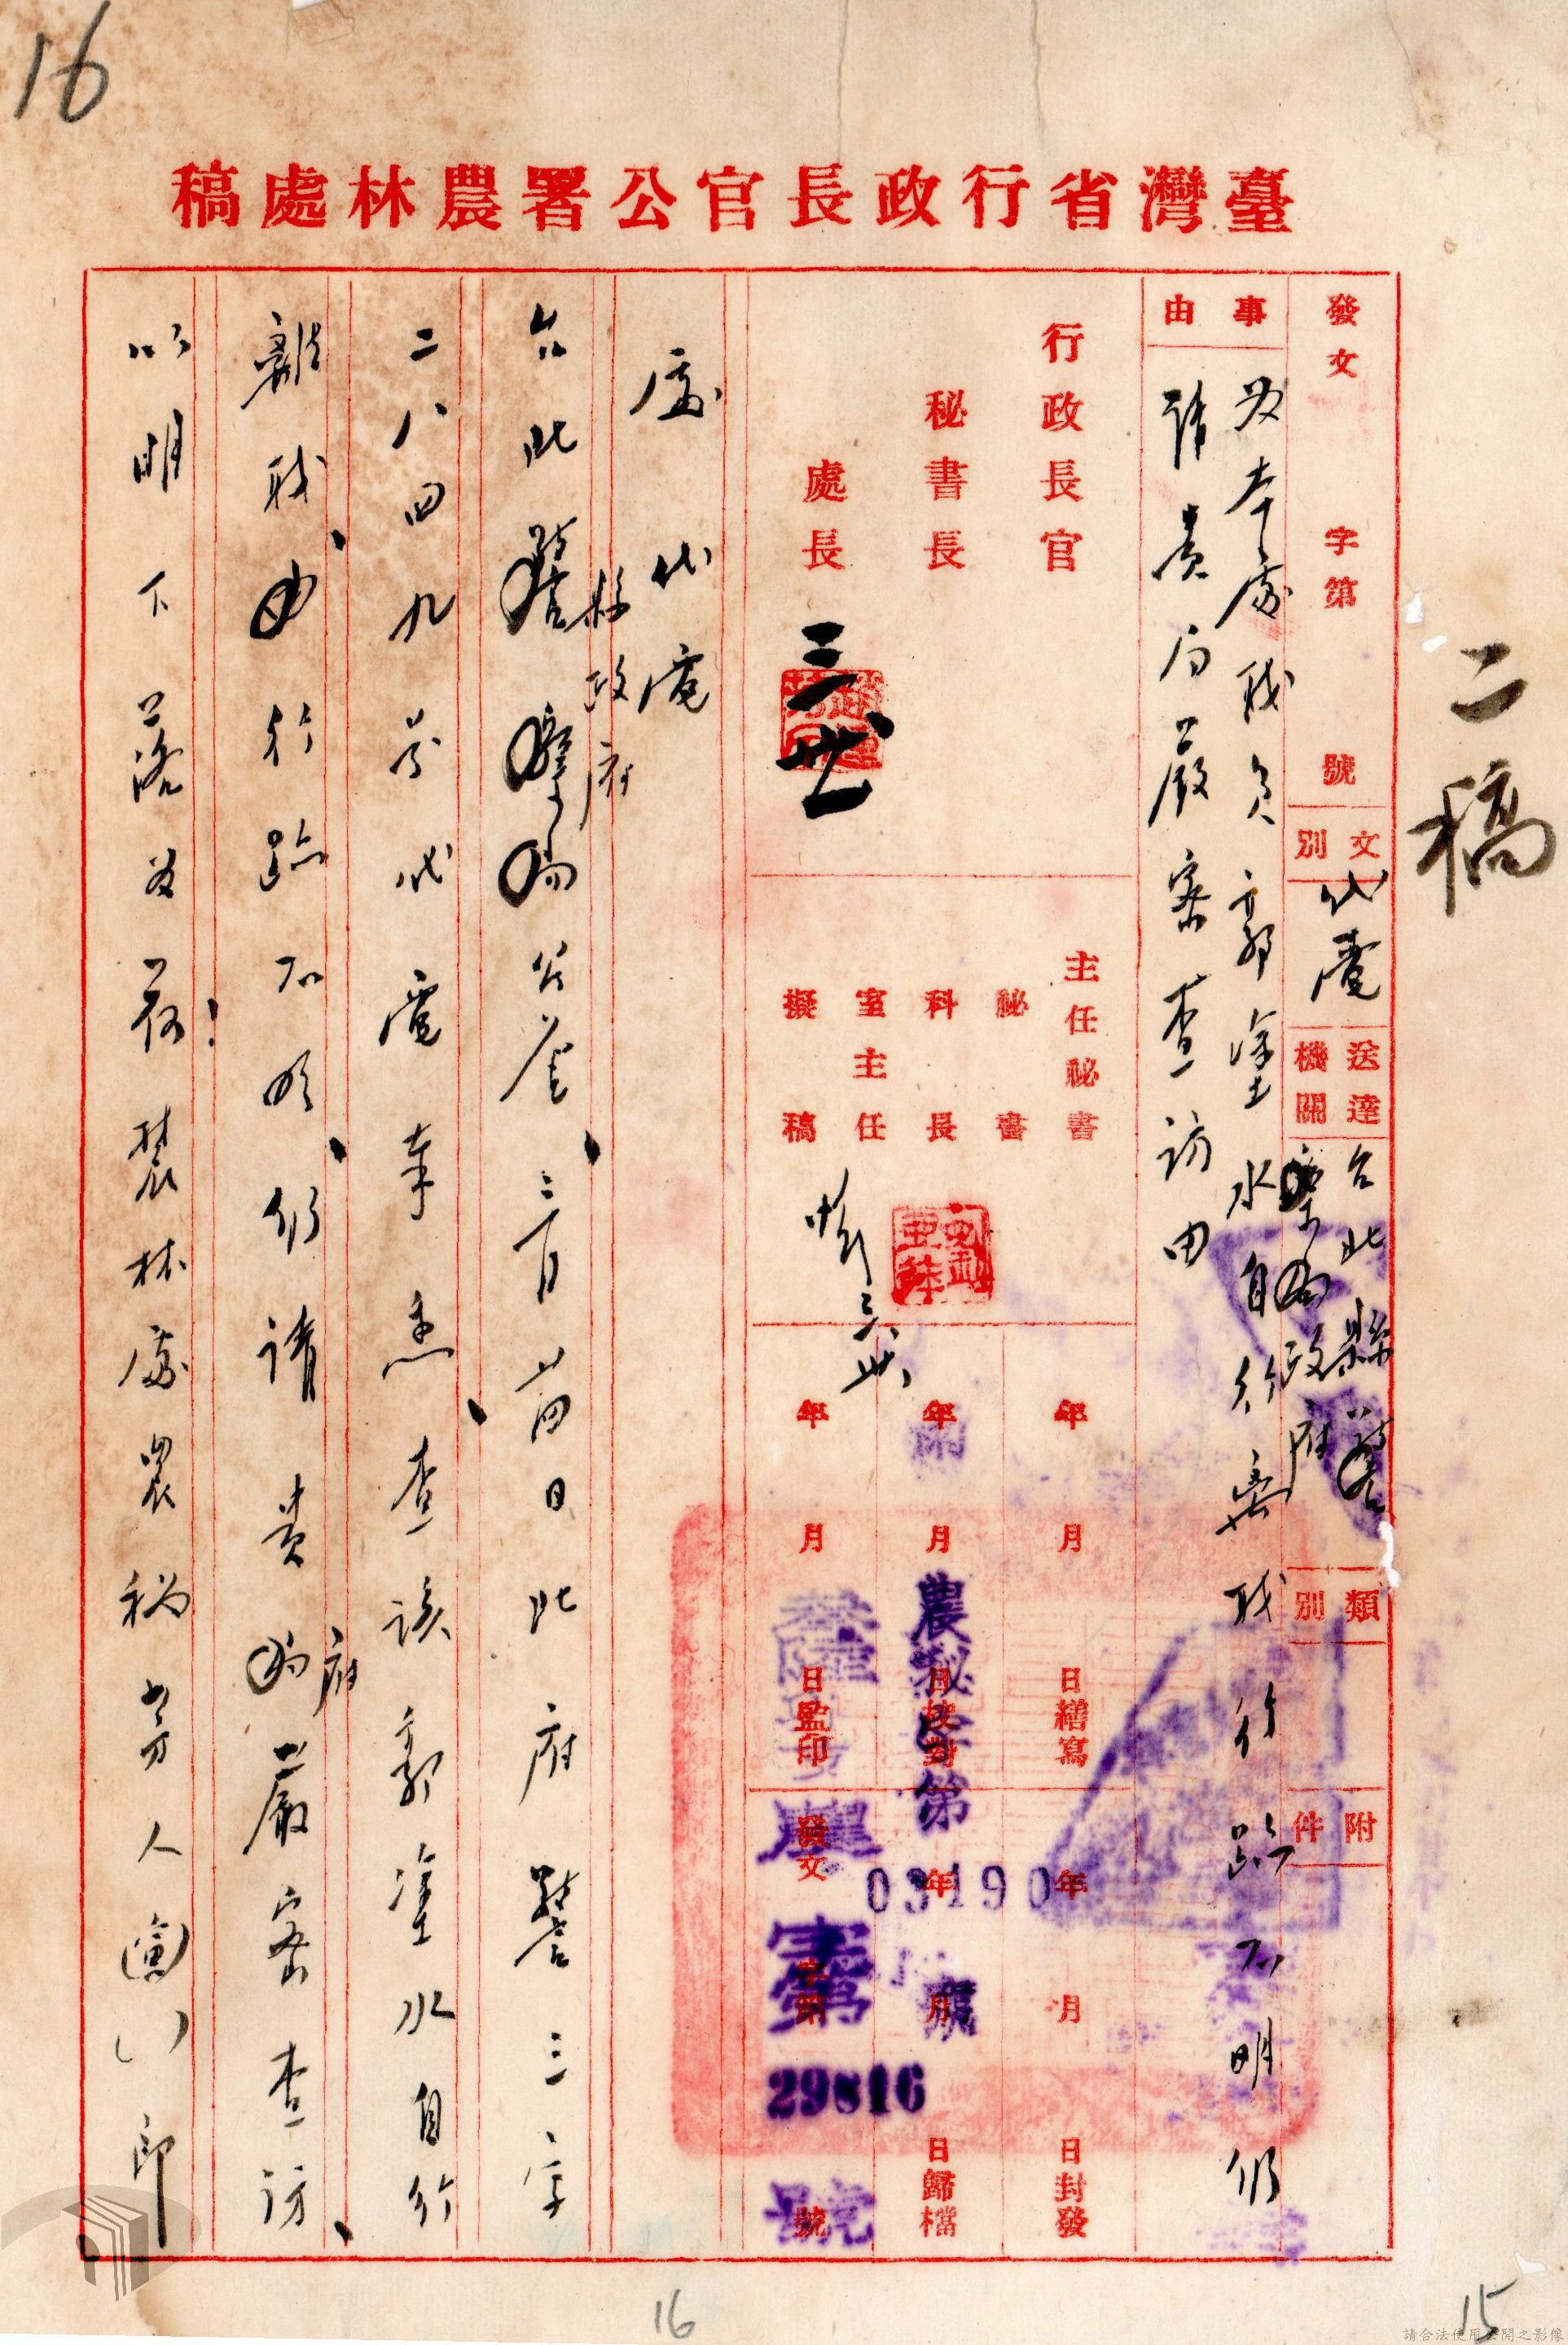 16
臺灣省行政長官公署農林處稿
二稿
發文 字第 號
文別 代電
送達機關 台北縣政府
類別
附件
事由 為本處職員郭塗水自行棄職行踪不明仍
請貴局嚴密查訪由
行政長官
秘書長
處長 三廿
主任秘書
秘書
科長
室主任
擬稿
年 月 日繕寫
年 月 日校對
年 月 日監印
年 月 日封發
年 月 日歸檔
發文
農秘字第
03190
29816
號
處代電
縣政府
台北 公鑒、三月廿四日北府警三字
二八四九號代電奉悉、查該郭塗水自行
離職、行踪不明、仍請貴府嚴密查訪、
以明下落為荷!農林處農秘 人(寅)( )印
16
15
請合法使用公開之影像